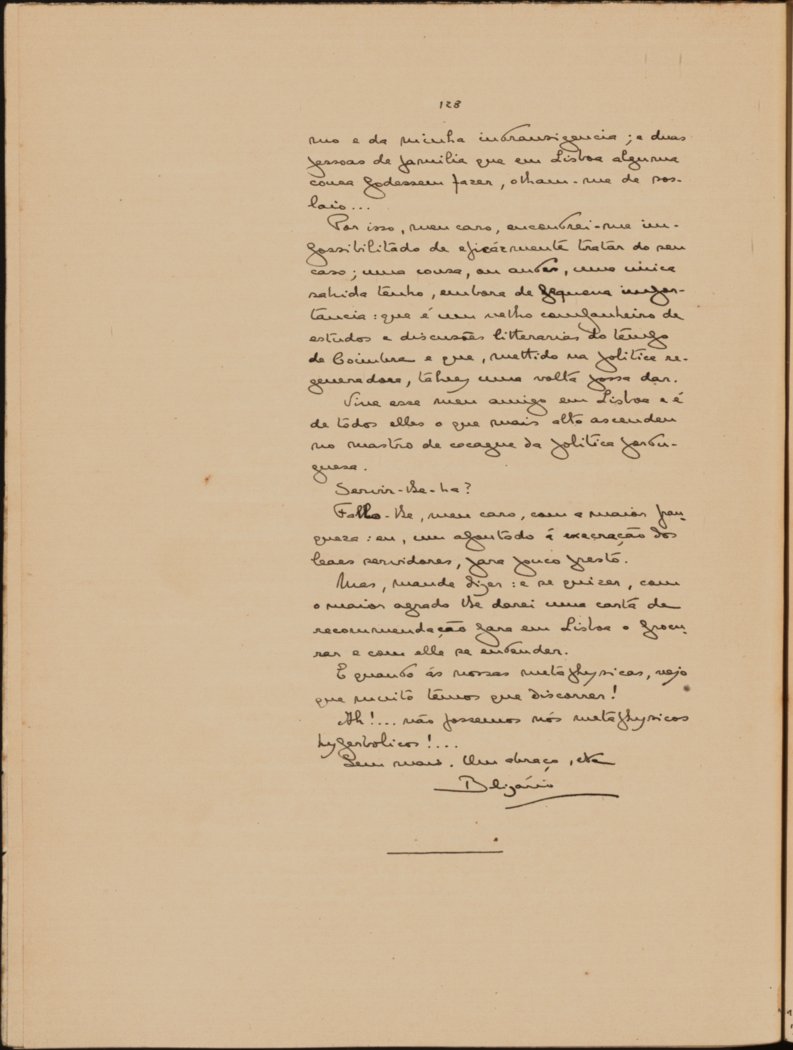 128
mo e da minha intransigencia; e duas
pessoas de familia que em Lisboa alguma
cousa podessem fazer, olham-me de sos-
laio...
Por isso, meu caro, encontrei-me im-
possibilitado de eficázmente tratar do seu
caso; uma cousa, ou antes, uma unica
sahida tenho, embora de pequena impor-
tancia: que é um velho companheiro de
estudos e discussões litterarias do tempo
de Coimbra e que, mettido na politica re-
generadora, talvez uma volta possa dar.
Vive esse meu amigo em Lisboa e é
de todos elles o que mais alto ascendeu
no mastro de cocagne da politica portu-
guesa.
Servir-lhe-ha?
Fallo-lhe, meu caro, com a maior fran-
queza: eu, um apontado á execração dos
leaes servidores, para pouco presto.
Mas, mande dizer: e se quizer, com
o maior agrado lhe darei uma carta de
recommendação para em Lisboa o procu-
rar e com elle se entender.
E quando ás nossas metaphysicas, vejo
que muito temos que discorrer!
Ah!... não fossemos nós metaphysicos
hyperbolicos!...
Sem mais. Um abraço, etc
Belizário